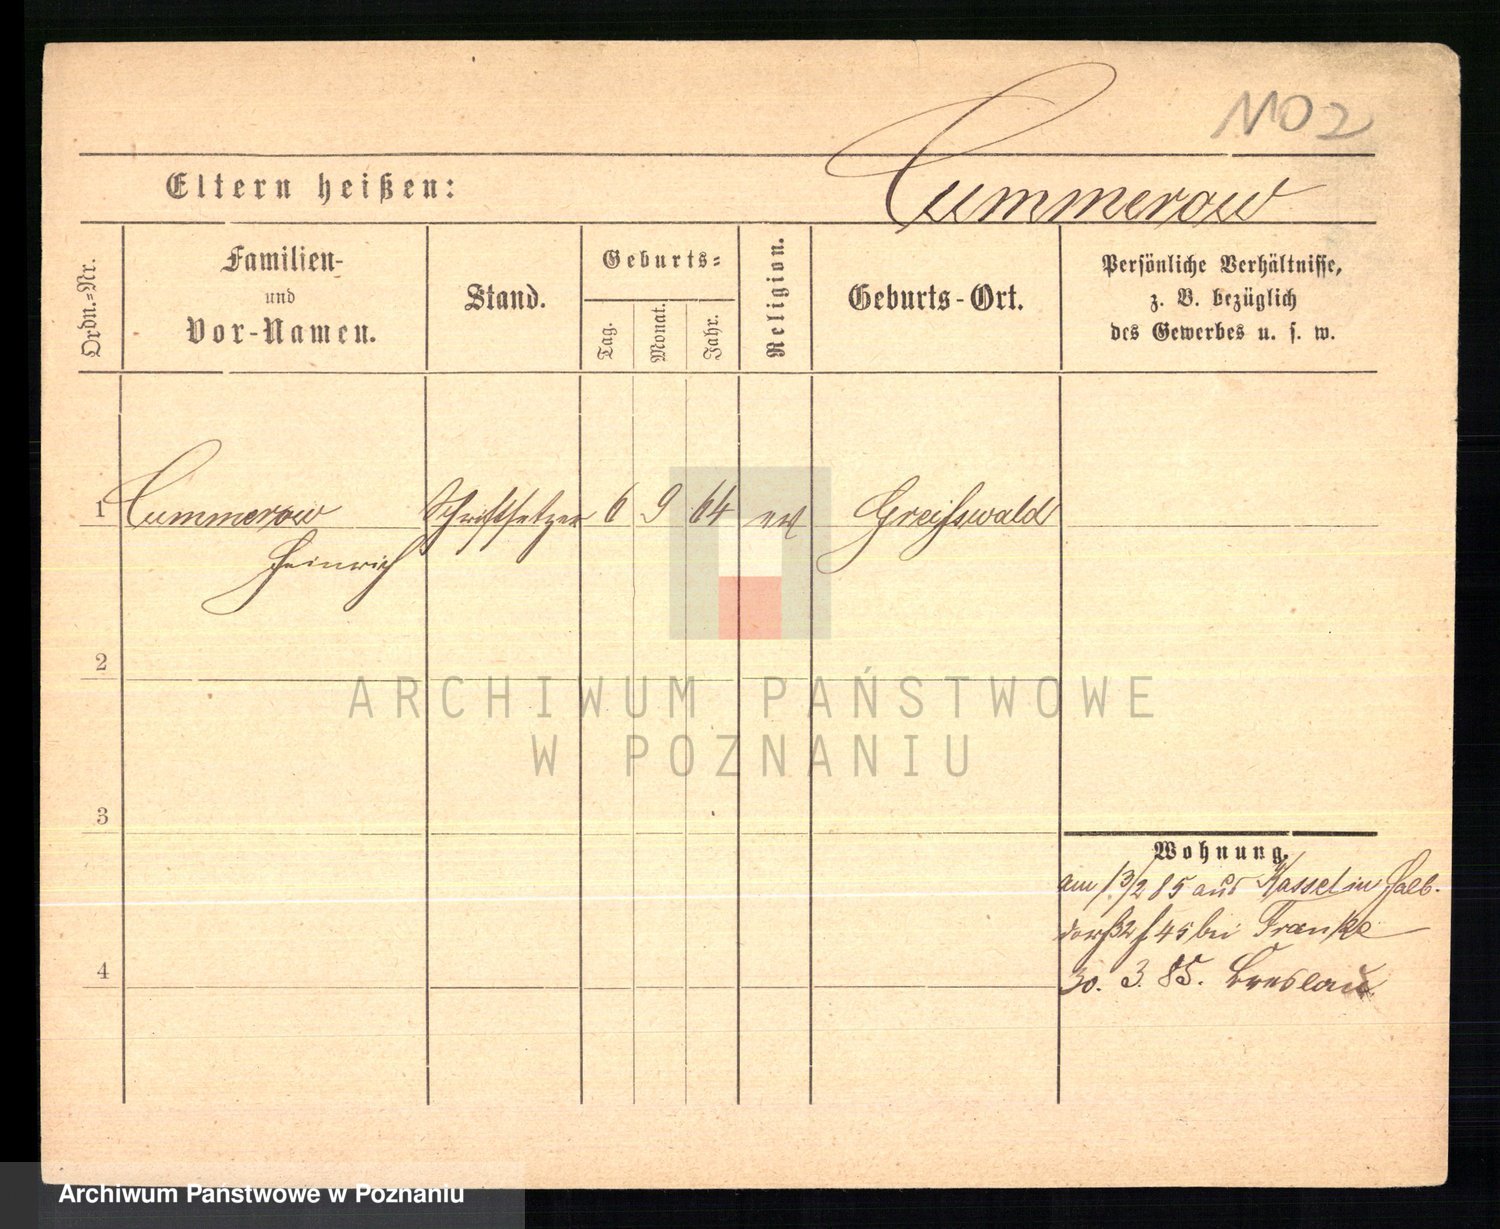 1102
Cummerow
Eltern heißen:
Ordn.=Nr.
Familien-
und
Vor-Namen.
Stand.
Geburts=
Tag.
Monat.
Jahr.
Religion.
Geburts-Ort.
Persönliche Verhältnisse,
z. B. bezüglich
des Gewerbes u. s. w.
1 Cummerow Schriftsetzer 6 9 64 ev Greifswald
Heinrich
2
ARCHIWUM PAŃSTWOWE
W POZNANIU
3
Wohnung.
am 13/2 85 aus Kassel in Halb-
dorfs 45 bei Franke
4
30. 3. 85. Breslau
Archiwum Państwowe w Poznaniu